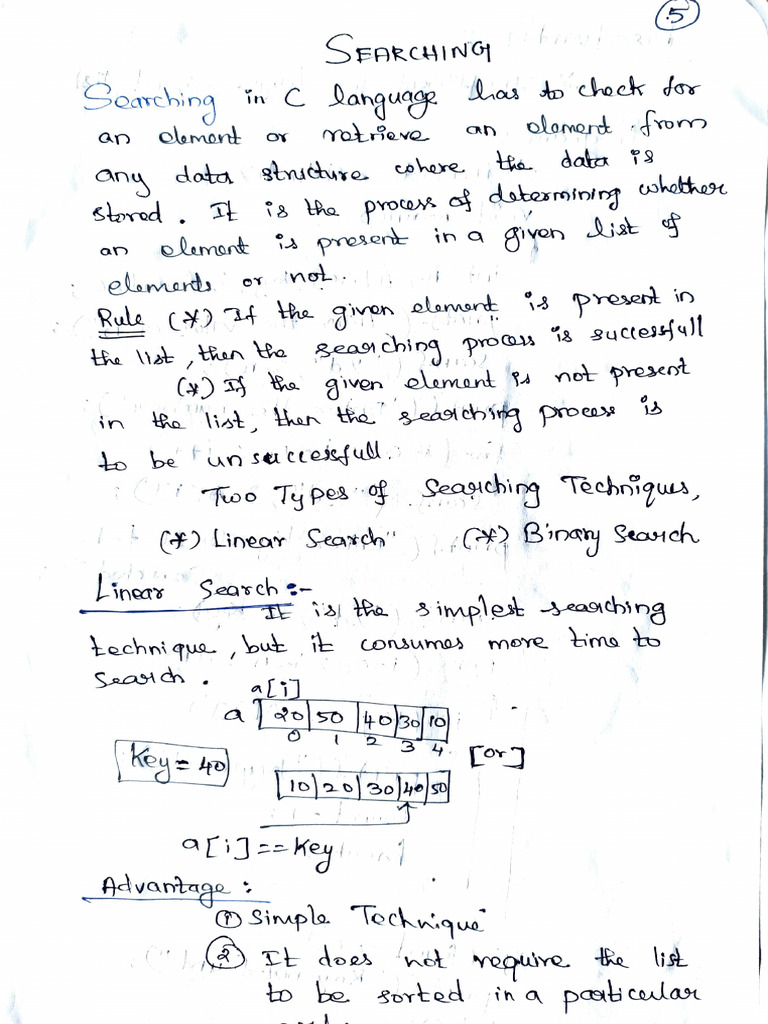 5
SEARCHING
Searching in C language has to check for
an element or retrieve an element from
any data structure where the data is
stored. It is the process of determining whether
an element is present in a given list of
elements or not.
Rule (*) If the given element is present in
the list, then the searching process is successfull
(*) If the given element is not present
in the list, then the searching process is
to be unsuccessfull.
Two Types of Searching Techniques,
(*) Linear Search (*) Binary Search
Linear Search:-
It is the simplest searching
technique, but it consumes more time to
search.
a[i]
a 20 50 40 30 10
0 1 2 3 4
Key = 40 [or]
10 20 30 40 50
a[i] == Key
Advantage:
① Simple Technique
② It does not require the list
to be sorted in a particular